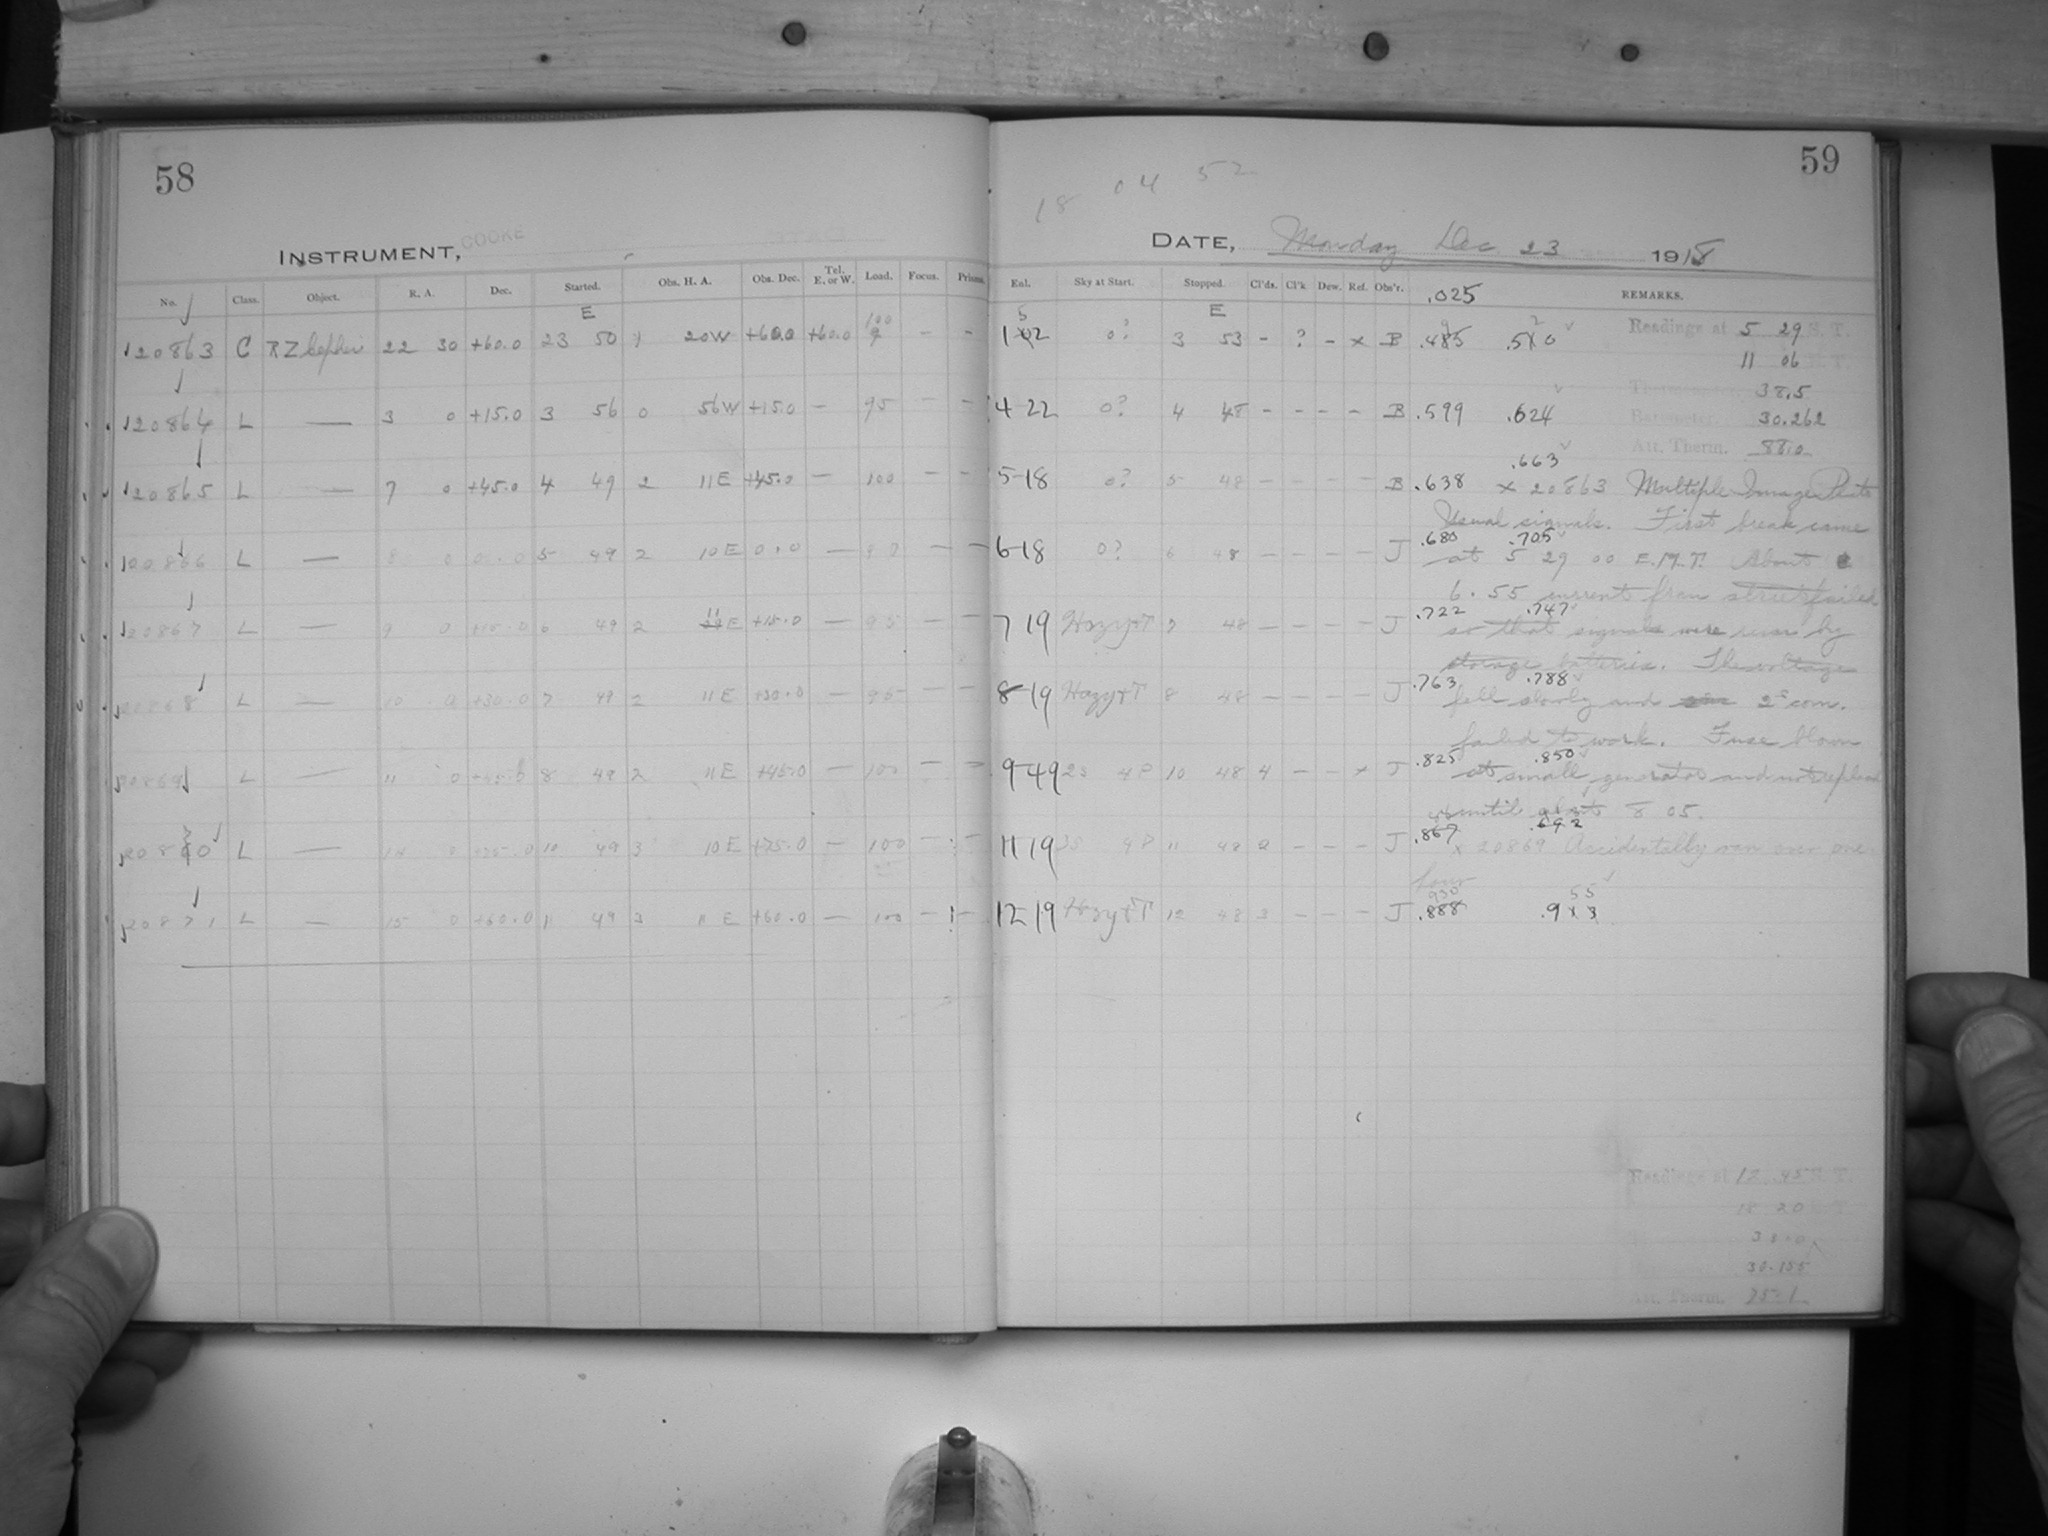 58
INSTRUMENT, COOKE
No. Class. Object. R. A. Dec. Started. Obs. H. A. Obs. Dec. Tel. E. or W. Load. Focus. Prisms.
E
100
120863 C RZ Cephei 22 30 +60.0 23 50 20W +60.0 +60.0 9 - -
120864 L — 3 0 +15.0 3 56 0 56W +15.0 — 95 - -
120865 L — 7 0 +45.0 4 49 2 11E +45.0 — 100 - -
L — 8 0 0.0 5 49 2 10E 0.0 — - -
11
20867 L — 9 0 +15.0 6 49 2 E +15.0 — 95 - -
20868 L — 10 0 +30.0 7 49 2 11E +30.0 — 95 - -
20869 L — 11 0 +45.0 8 49 2 11E +45.0 — 100 - -
L — 0 10 49 3 10E +75.0 — 100 -
20871 L — 15 0 +60.0 11 49 3 11E +60.0 — 100 - -
59
18 04 52
DATE, Monday Dec 23 1918
Exl. Sky at Start. Stopped. Cl'ds. Cl'k Dew. Ref. Obs'r. .025 REMARKS.
5 E
102 0? 3 53 - ? - x B .485 .510 Readings at 5 29 S. T.
11 06
Thermometer 38.5
4-22 0? 4 48 - - - - B .599 .624 Barometer 30.262
Att. Therm.
.663
5-18 0? 5 48 - - - - B .638 x 20863 Multiple Image Plate
Usual signals. First break came
6-18 0? 6 48 - - - - J .680 .705
at 5 29 00 E.M.T. About
6.55 current from street failed
7 19 Hazy+T 7 48 - - - - J .722 .747
so that signals were run by
storage batteries. The voltage
8-19 Hazy+T 8 48 - - - - J .763 .788
fell slowly and 2s com.
failed to work. Fuse blown
9-49 2s 4P 10 48 4 - - x J .825 .850
at small generator and not replaced
until about 8 05.
11 19 3s 4P 11 48 2 - - - J .867 .692
x 20869 Accidentally ran over one
hour
930 55
12 19 Hazy+T 12 48 3 - - - J .888 .9
Readings at 12 45 S. T.
18 20
38.0
30.155
Att. Therm.